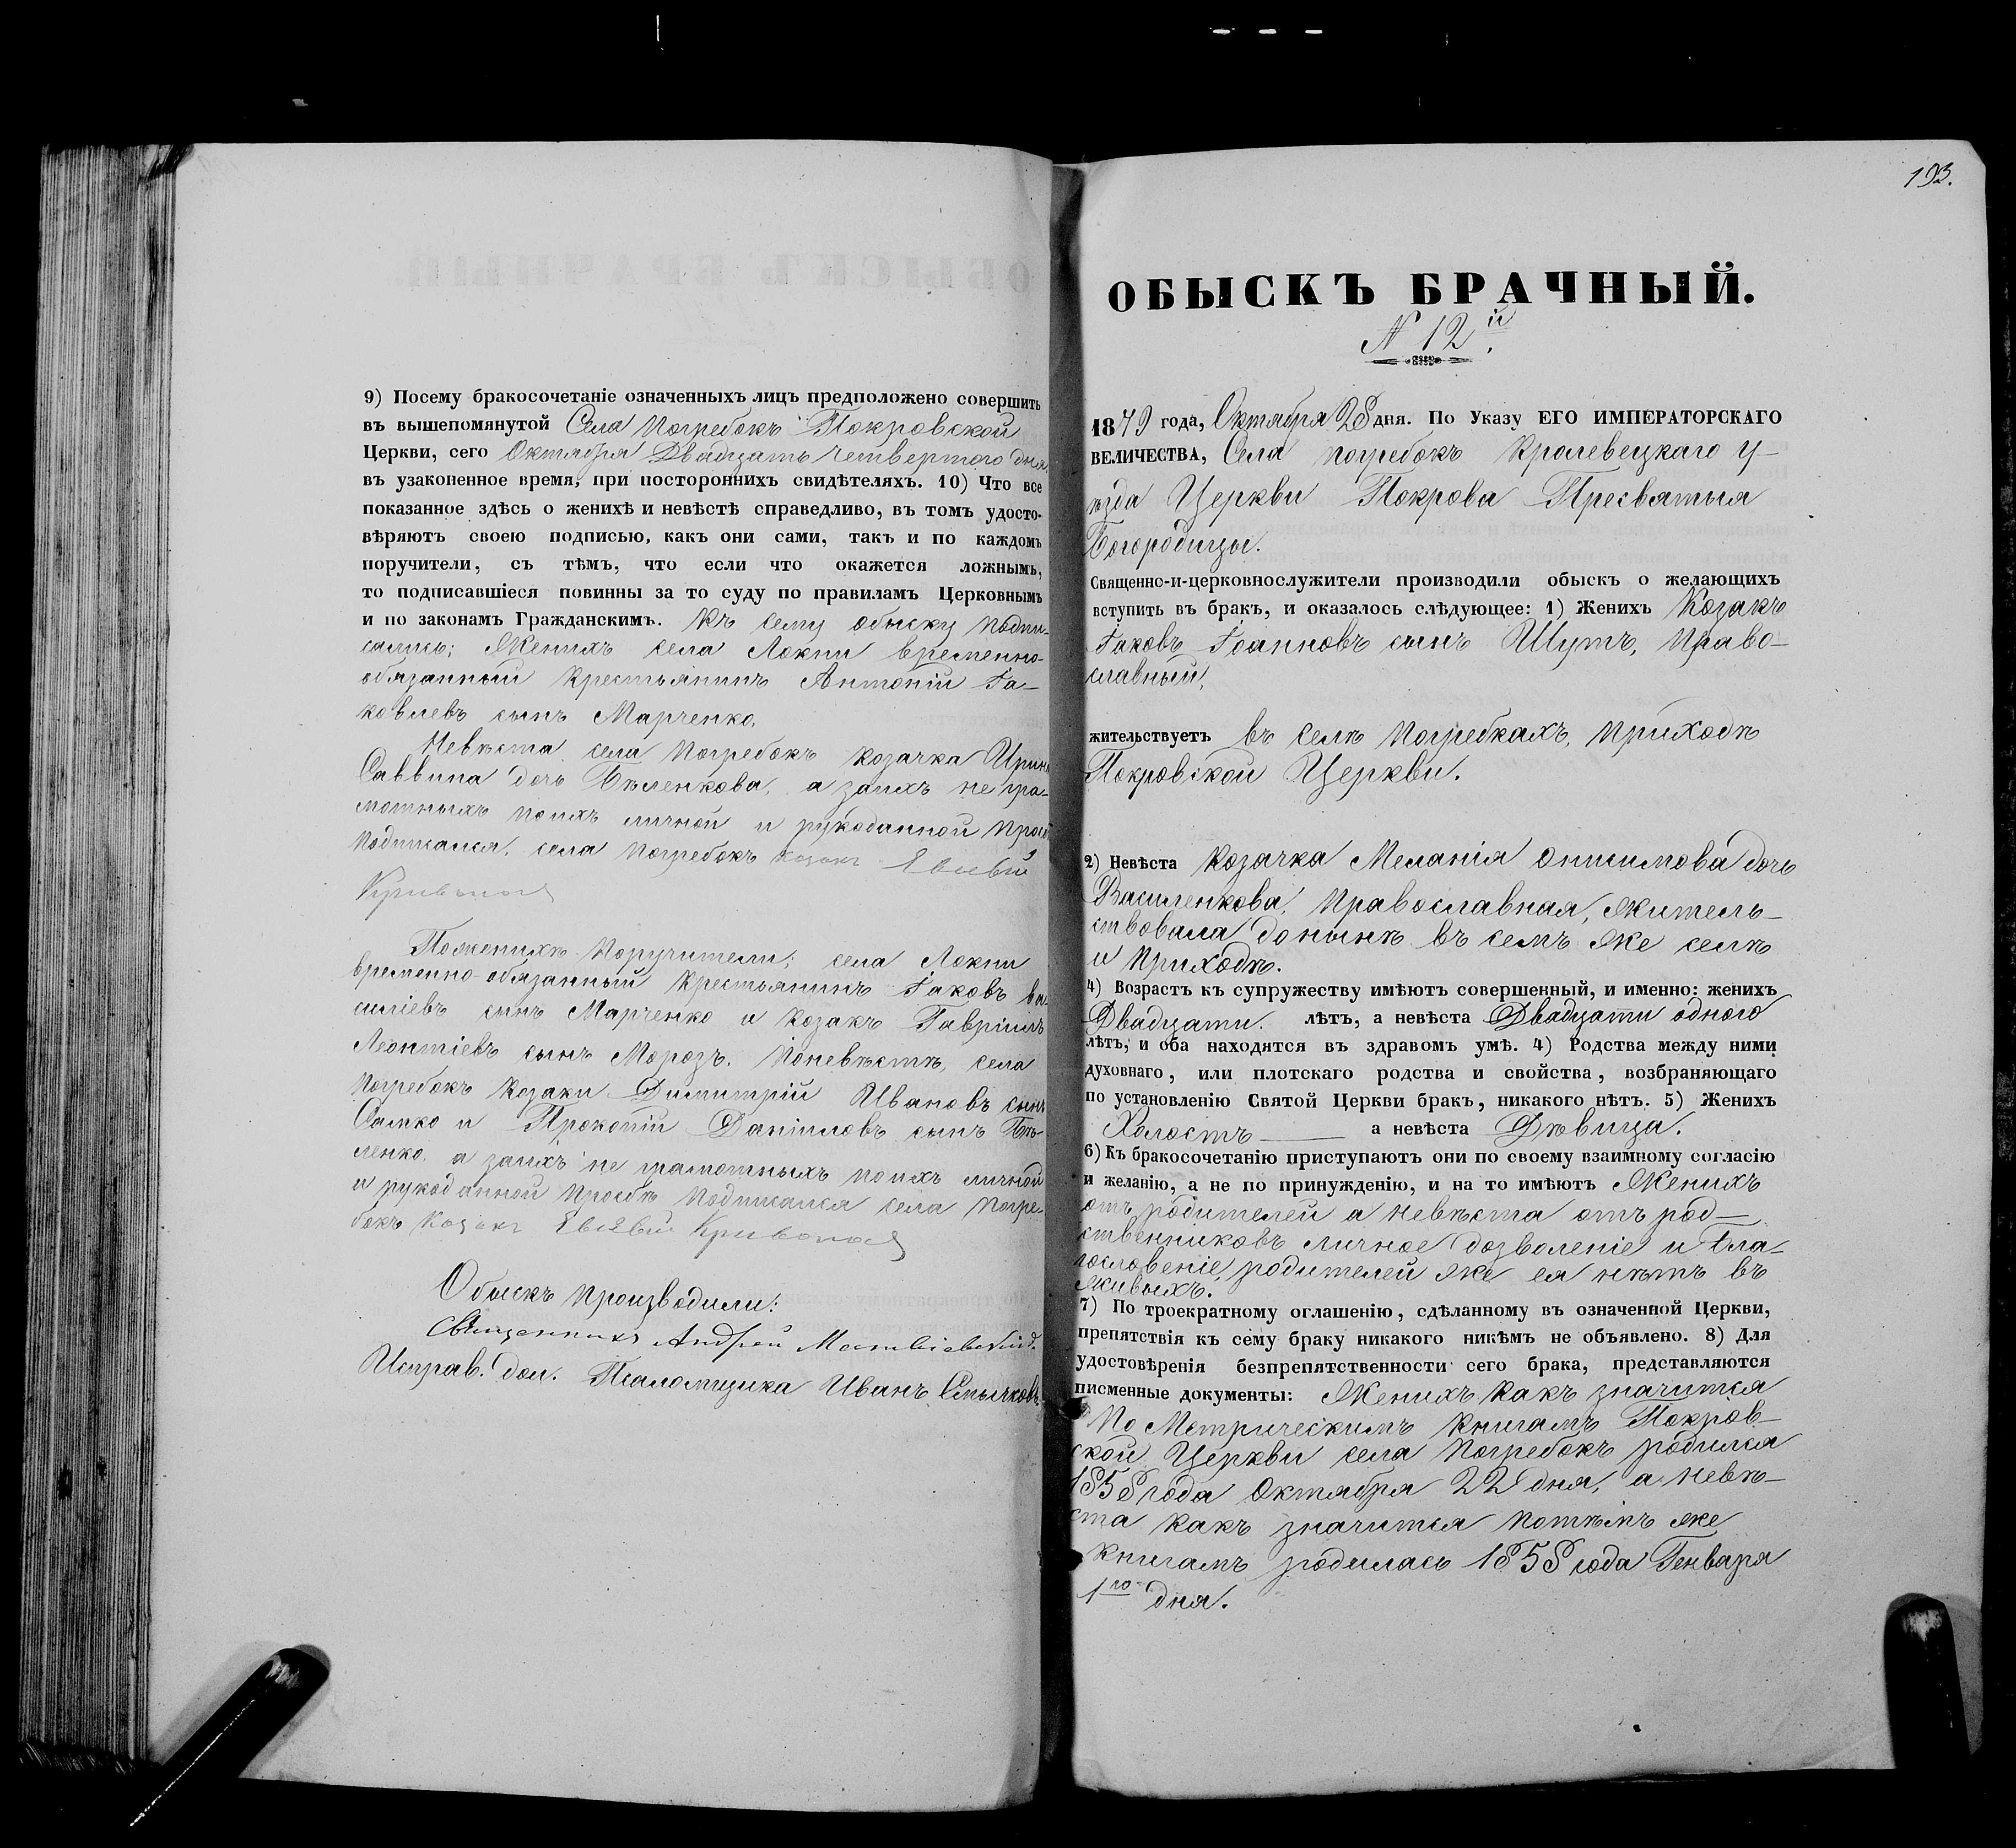 9) Посему бракосочетаніе означенныхъ лицъ предположено совершить
въ вышепомянутой Села Погребокъ Покровской
Церкви, сего Октября Двадцать четвертого дня
въ узаконенное время, при постороннихъ свидѣтеляхъ. 10) Что все
показанное здѣсь о женихѣ и невѣстѣ справедливо, въ томъ удосто-
вѣряютъ своею подписью, какъ они сами, такъ и по каждомъ
поручители, съ тѣмъ, что если что окажется ложнымъ,
то подписавшіеся повинны за то суду по правиламъ Церковнымъ
и по законамъ Гражданскимъ. Къ сему обыску подпи-
сались; Женихъ села Локни временно-
обязанный крестьянинъ Антоній Іа-
ковлевъ сынъ Марченко,
Невѣста села Погребокъ козачка Ирина
Саввина дочь Бѣленкова, а заихъ не гра-
мотныхъ поихъ личной и рукоданной прось
подписался. села Погребокъ козакъ Евсевій
Кривопо
Поженихѣ поручители; села Локни
временно-обязанный крестьянинъ Іаковъ Ва-
силіевъ сынъ Марченко и козакъ Гавріилъ
Леонтіевъ сынъ Морозъ. Поневѣстѣ, села
Погребокъ козаки Димитрій Ивановъ сынъ
Самко и Прокопій Даніиловъ сынъ Бѣ-
ленко, а заихъ не грамотныхъ поихъ личной
и рукоданной просьбѣ подписался села Погре-
бокъ козакъ Евсевій Кривопо
Обыскъ производили:
Священникъ Андрей
Исправ. дол. Псаломщика Иванъ Смычковъ
193.
ОБЫСКЪ БРАЧНЫЙ.
N 12й.
1879 года, Октября 28 дня. По Указу ЕГО ИМПЕРАТОРСКАГО
ВЕЛИЧЕСТВА, Села Погребокъ Кролевецкаго у-
ѣзда Церкви Покрова Пресвятыя
Богородицы.
Священно-и-церковнослужители производили обыскъ о желающихъ
вступить въ бракъ, и оказалось слѣдующее: 1) Женихъ Козакъ
Іаковъ Іоанновъ сынъ Шутъ, Право-
славный,
жительствуетъ въ селѣ Погребкахъ, приходѣ
Покровской Церкви.
2) Невѣста Козачка Меланія Онисимова дочь
Василенкова, Православная, житель-
ствовала донынѣ въ семъ же селѣ
и приходѣ.
4) Возрастъ къ супружеству имѣютъ совершенный, и именно: женихъ
Двадцати. лѣтъ, а невѣста Двадцати одного
лѣтъ, и оба находятся въ здравомъ умѣ. 4) Родства между ними
духовнаго, или плотскаго родства и свойства, возбраняющаго
по установленію Святой Церкви бракъ, никакого нѣтъ. 5) Женихъ
Холостъ а невѣста Дѣвица.
6) Къ бракосочетанію приступаютъ они по своему взаимному согласію
и желанію, а не по принужденію, и на то имѣютъ Женихъ
отъ родителей а невѣста отъ род-
ственниковъ личное дозволеніе и бла-
гословеніе, родителей же ея нѣтъ въ
живыхъ.
7) По троекратному оглашенію, сдѣланному въ означенной Церкви,
препятствія къ сему браку никакого никѣмъ не объявлено. 8) Для
удостовѣренія безпрепятственности сего брака, представляются
писменные документы: Женихъ какъ значится
По Метрическимъ книгамъ Покров-
ской Церкви села Погребокъ родился
1858 года Октября 22 дня, а невѣ-
ста какъ значится потѣмъ же
книгамъ родилась 1858 года Генваря
1го дня.